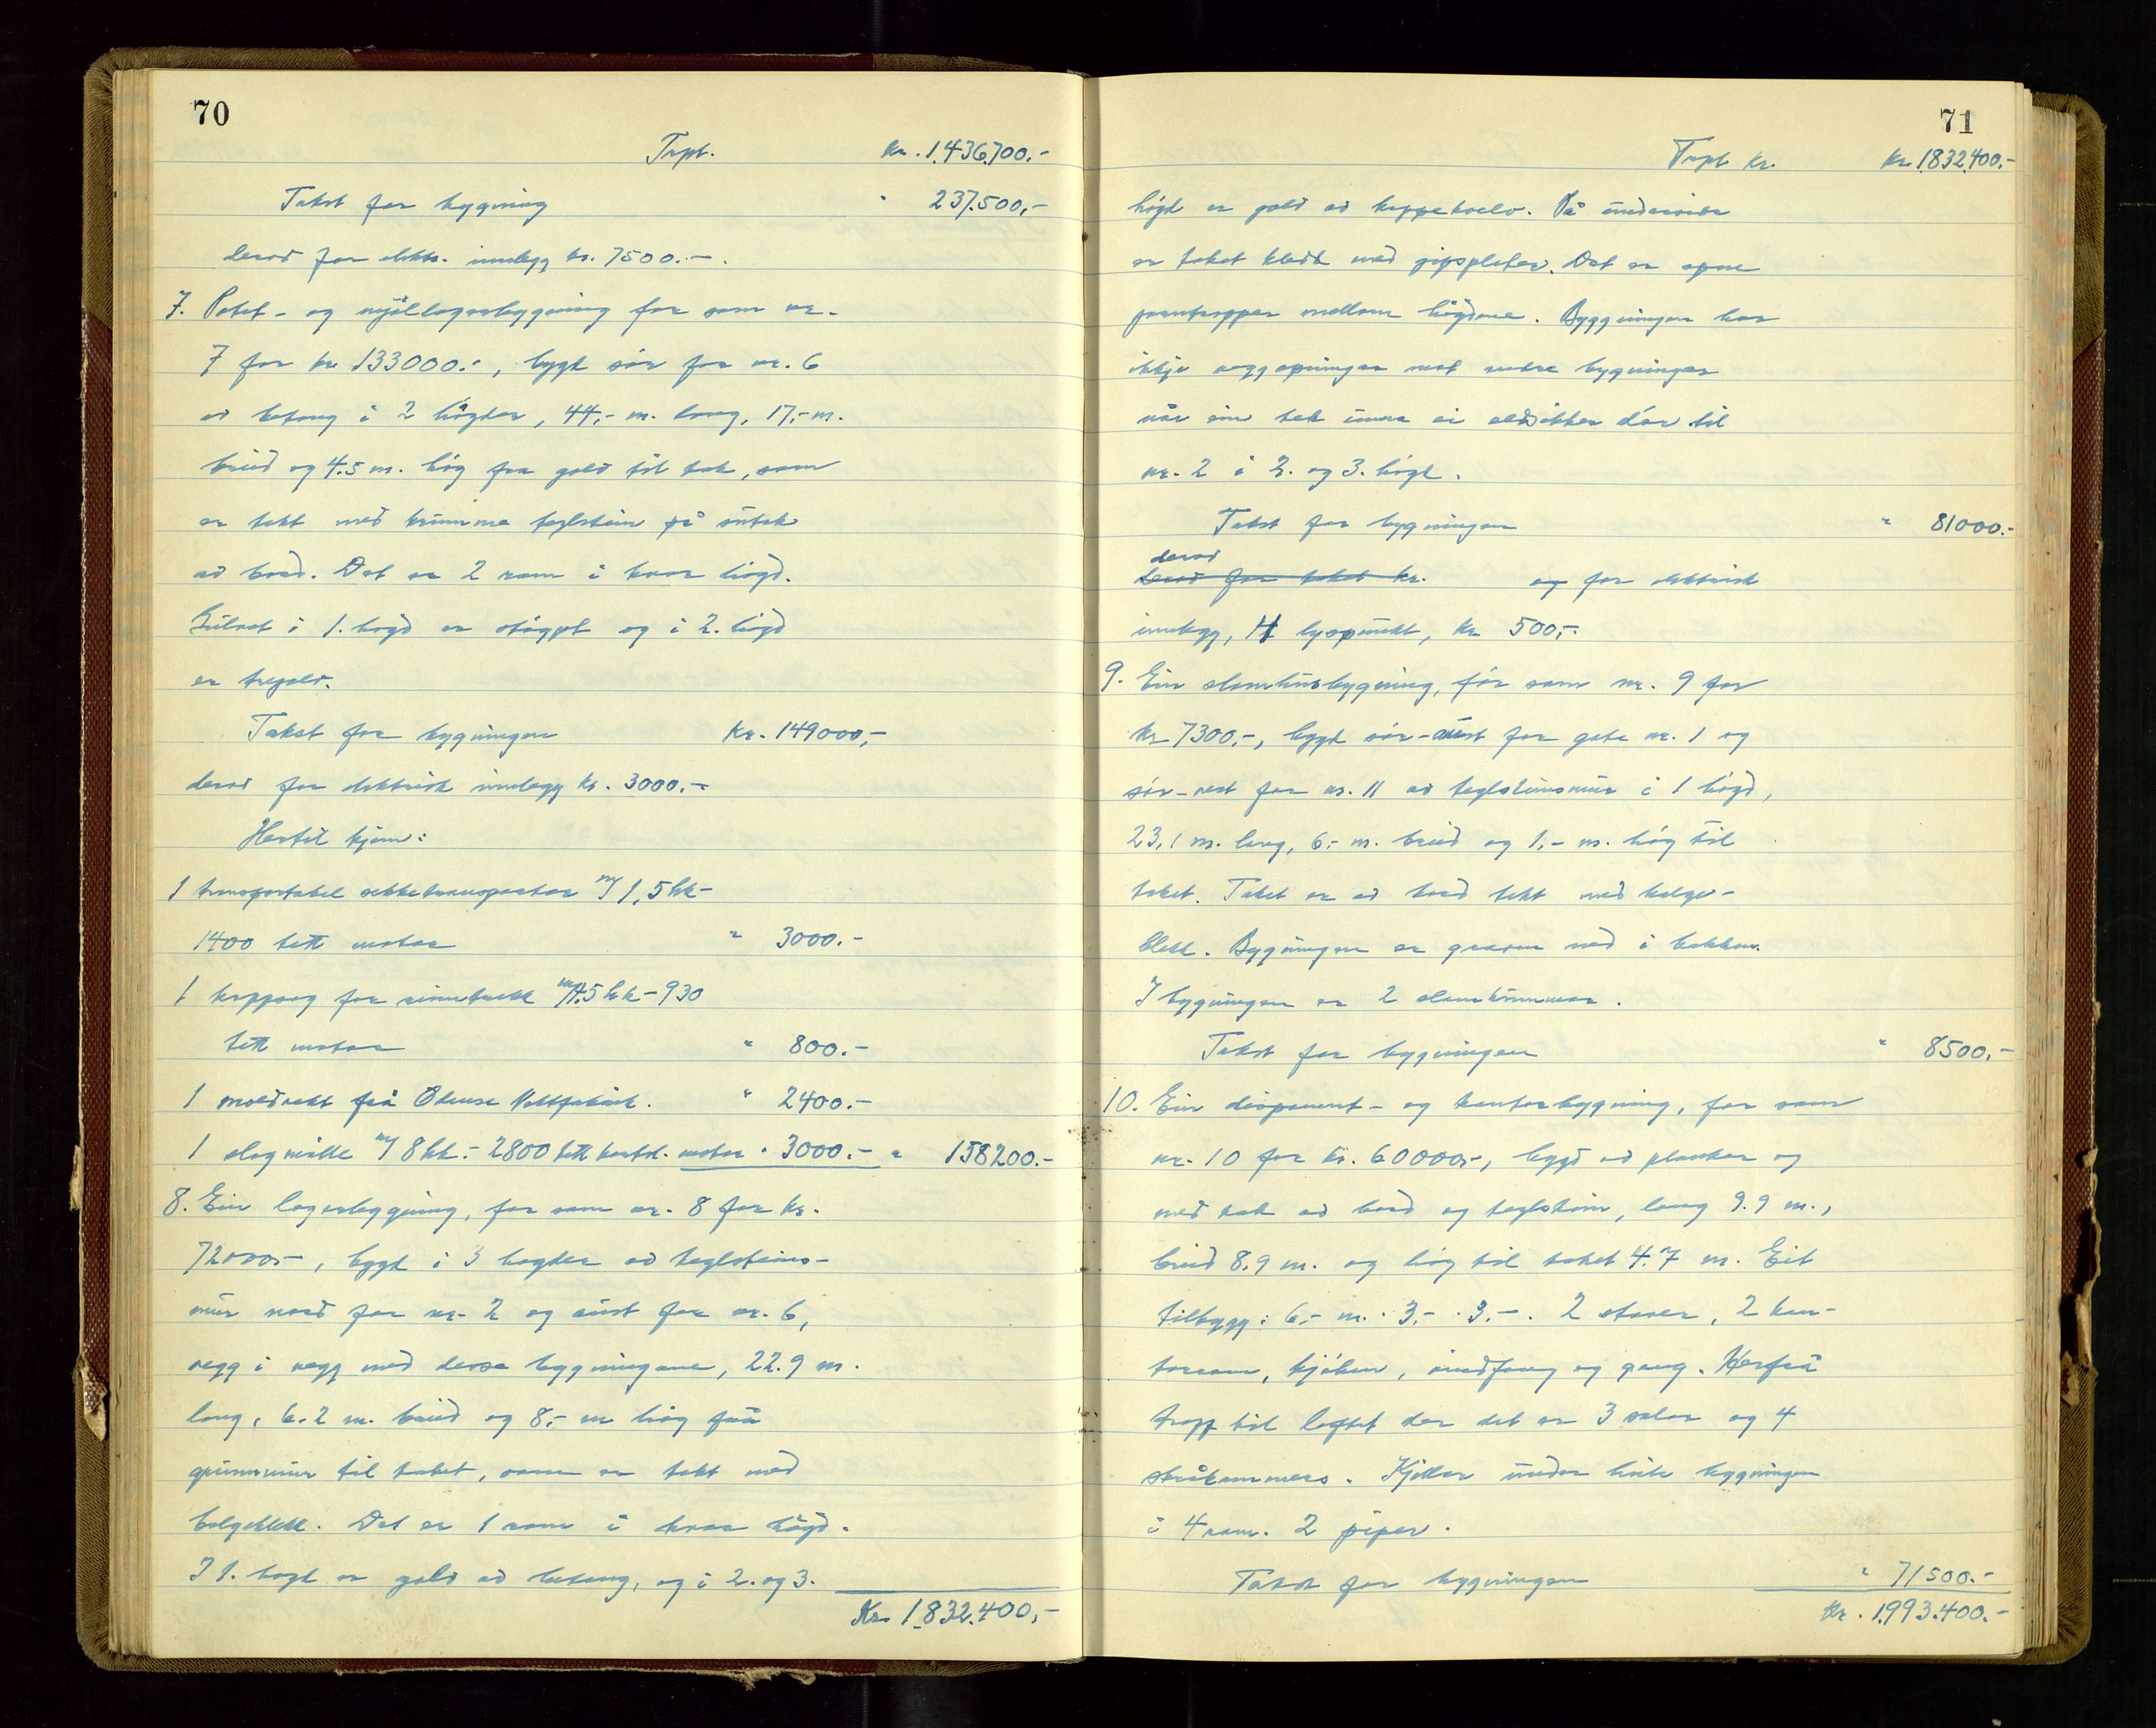 70
Trpt. kr. 1.436.700.-
Takst for bygning " 237.500,-
derav for elektr. innlegg kr. 7500.-.
7. Potet- og mjöllagerbygning før som nr.
7 for kr 133000.-, bygt sør for nr. 6
av betong i 2 høgder, 44,- m. lang, 17,- m.
breid og 4.5 m. høg fra golv til tak, som
er tekt med krumme teglstein på sutak
av bord. Det er 2 rom i kvar høgd.
Gulvet i 1. høgd er støypt og i 2. høgd
er tregolv.
Takst for bygningen Kr. 149000,-
derav for elektrisk innlegg kr. 3000.-
Hertil kjem:
1 transportabel sekketransportør m/ 1,5 hk-
1400 tett motor " 3000.-
1 kappsag for m/4.5 hk-930
tett motor " 800.-
1 frå Odense " 2400.-
1 slagmölle m/ 8 hk.- 2800 tett motor " 3000.- " 158200.-
8. Ein lagerbygning, før som nr. 8 for kr.
72000.-, bygt i 3 høgder av teglsteins-
mur nord for nr. 2 og aust for nr. 6,
vegg i vegg med desse bygningane, 22.9 m.
lang, 6.2 m. breid og 8.- m høg frå
grunnmur til taket, som er tekt med
bølgeblekk. Det er 1 rom i kvar høgd.
I 1. høgd er golv av betong, og i 2. og 3.
Kr. 1.832.400,-
71
Trpt kr. kr. 1832.400.-
høgd er golv av På undersida
er taket kledt med gipsplater. Det er opne
jarntropper mellom høgdene. Byggningen har
ikkje veggopningar mot andre bygningar
når ein tek unna ei eldsikker dør til
nr. 2 i 2. og 3. høgd.
Takst for bygningen " 81000.-
derav
derav for taket kr. og for elektrisk
innlegg, 14 lyspunkt, kr 500,-.
9. Ein slamhusbygning, før som nr. 9 for
kr 7300.-, bygt sør-aust for gata nr. 1 og
sør-vest for nr. 11 av teglsteinsmur i 1 høgd,
23,1 m. lang, 6.- m. breid og 1,- m. høg til
taket. Taket er av bord tekt med bølge-
blekk. Bygningen er graven ned i bakken.
I bygningen er 2 slamkummar.
Takst for bygningen " 8500.-
10. Ein disponent- og kontorbygning, før som
nr. 10 for kr. 60000.-, bygd av plankar og
med tak av bord og teglstein, lang 9.9 m.,
breid 8.9 m. og høg til taket 4.7 m. Eit
tilbygg: 6,- m. · 3,- · 3,-. 2 stover, 2 kon-
torrom, kjøken, innfang og gang. Herfrå
trapp til loftet der det er 3 salar og 4
skråkammers. Kjellar under heile bygningen
i 4 rom. 2 piper.
Takst for bygningen " 71500.-
Kr. 1.993.400.-